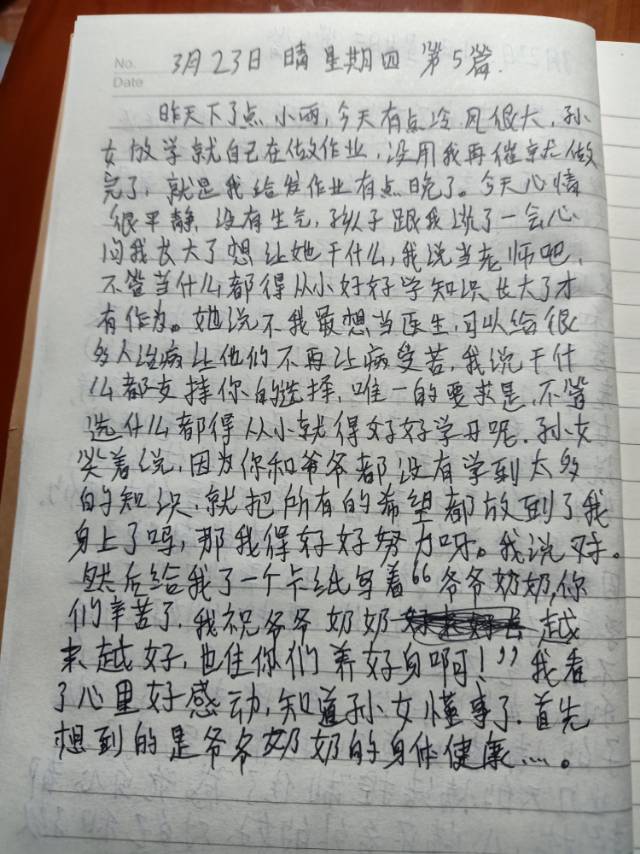 No.
Date
3月23日 晴 星期四 第5篇.
昨天下了点小雨,今天有点冷.风很大,孙
女放学就自己在做作业,没用我再催就做
完了,就是我给发作业有点晚了。今天心情
很平静,没有生气,孙子跟我说了一会心
问我长大了想让她干什么,我说当老师吧,
不管当什么都得从小好好学知识,长大了才
有作为。她说不我最想当医生,可以给很
多人治病让他们不再让病受苦,我说干什
么都支持你的选择,唯一的要求是,不管
选什么都得从小就得好好学习呢.孙女
笑着说,因为你和爷爷都没有学到太多
的知识,就把所有的希望都放到了我
身上了吗,那我得好好努力呀。我说对.
然后给我了一个卡纸写着“爷爷奶奶,你
们辛苦了.我祝爷爷奶奶 越
来越好,也住你们养好身啊!”我看
了心里好感动,知道孙女懂事了.首先
想到的是爷爷奶奶的身体健康……。